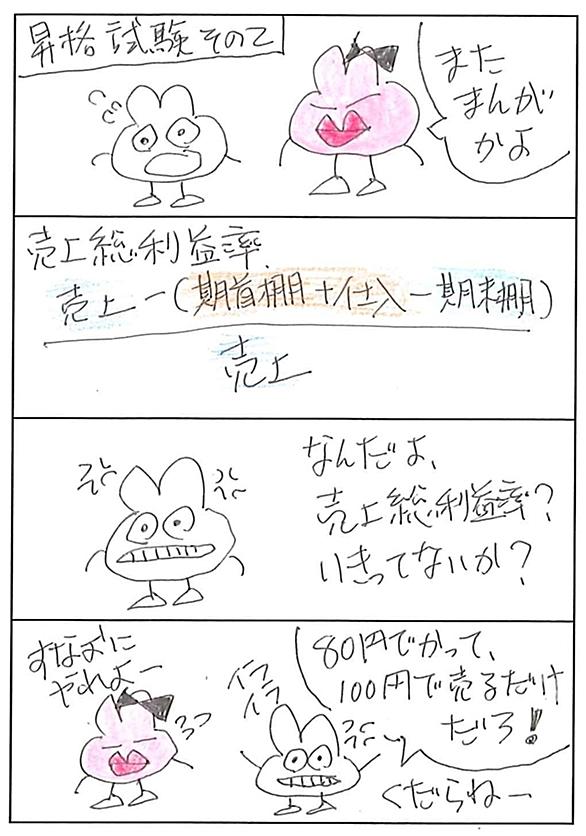 昇格試験その2
また
まんが
かよ
売上総利益率
売上-(期首棚+仕入-期末棚)
売上
なんだよ、
売上総利益率?
いきってないか?
すなおに
やれよー
イライラ
80円でかって、
100円で売るだけ
だろ!
くだらねー